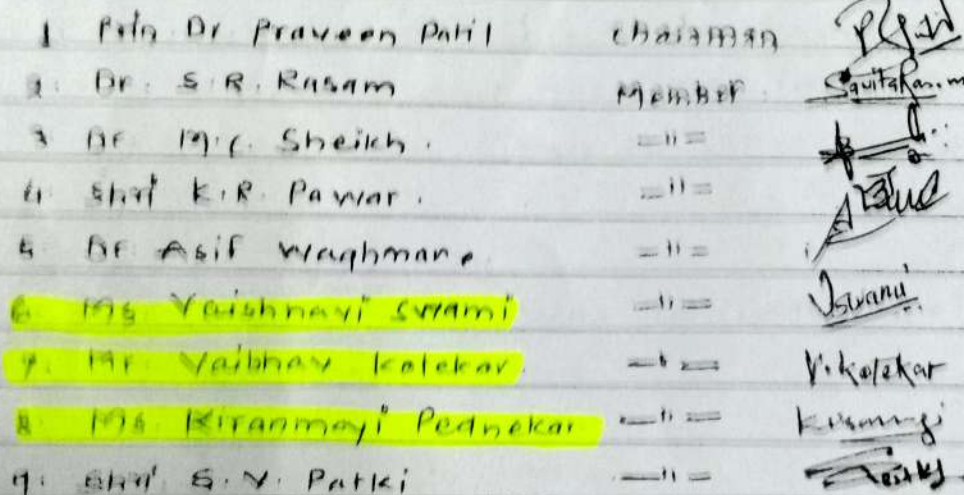 1 Prin Dr Praveen Patil Chairman
2. Dr. S. R. Rasam Member SavitaRasam
3 Dr M.C. Sheikh. —〃—
4. Shri K.R. Pawar. —〃—
5 Dr Asif Waghmare —〃—
6. Ms Vaishnavi Swami —〃— Vswami
7. Mr. Vaibhav Kolekar. —〃— V.kolekar
8 Ms Kiranmayi Pednekar —〃—
9. Shri S. V. Patki —〃—